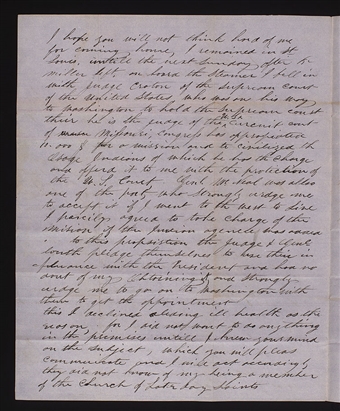 I hope you will not think hard of me
for coming home, I remained in St
Louis, untile the next Sunday, after the
letter left, on board the Steamer I fell in
with Judge of the Supream court
of the United States who was on his way
to Washington to hold the Supream court
their he is the judge of the Circuit court
of Missouri, Congress has appropriated
for a mission and to civilize the
Osage Indians of which he has the charge
and offerd it to me with the protection of
the U. S. Genl was allso
one of the party who strongly urdge me
to accept it if I went to the west to live
I parcialy agreed to take charge of the
mission if the Indian agency was added
to this proposition the judge & Genl
pledge themselves to use their in
fluence with the President and had no
dout of my obtaining it and strongly
urdge me to go on to Washington with
them to get the appointment
this I declined ill health as the
reason, for I did not want to do anything
in the premises untill I knew your mind
on the subject, which you will please
communicate and I will act accordingly
they did not know of my being a member
of the Church of Latter day Saints